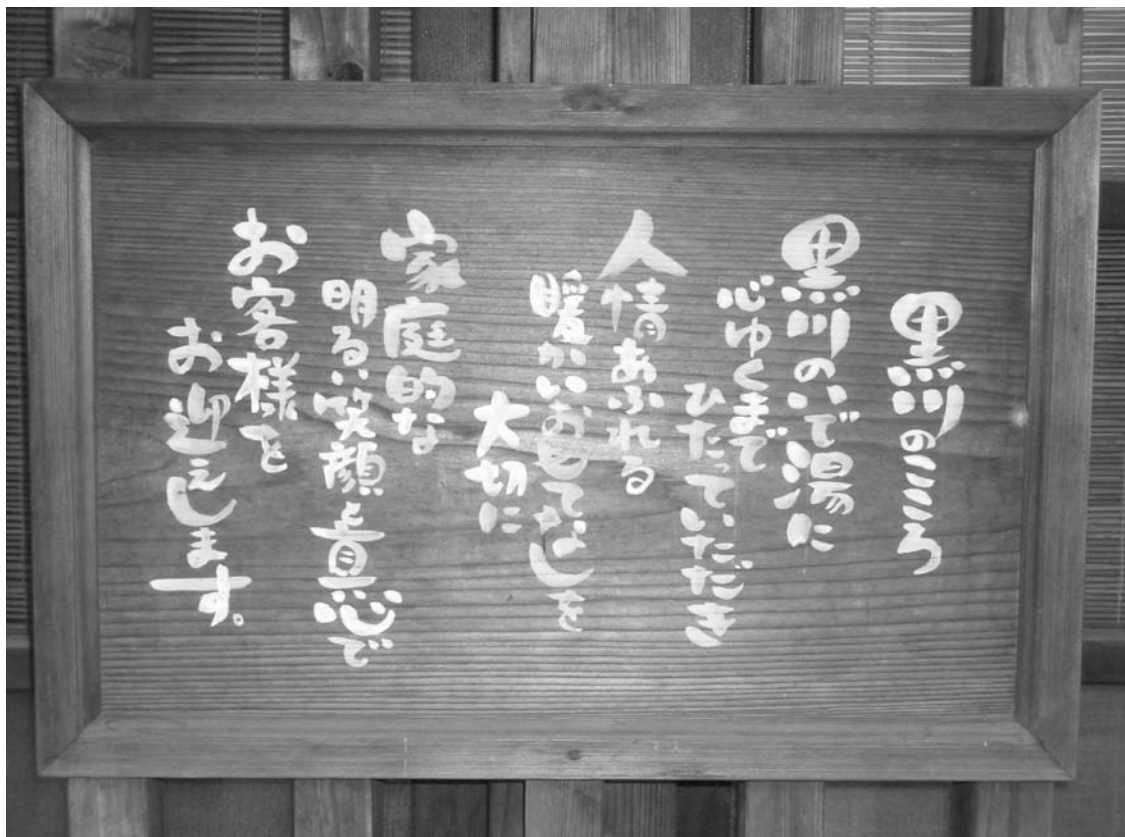 黒川のこころ
黒川のいで湯に
心ゆくまで
ひたっていただき
人情あふれる
暖かいおもてなしを
大切に
家庭的な
明るい笑顔と真心で
お客様を
お迎えします。